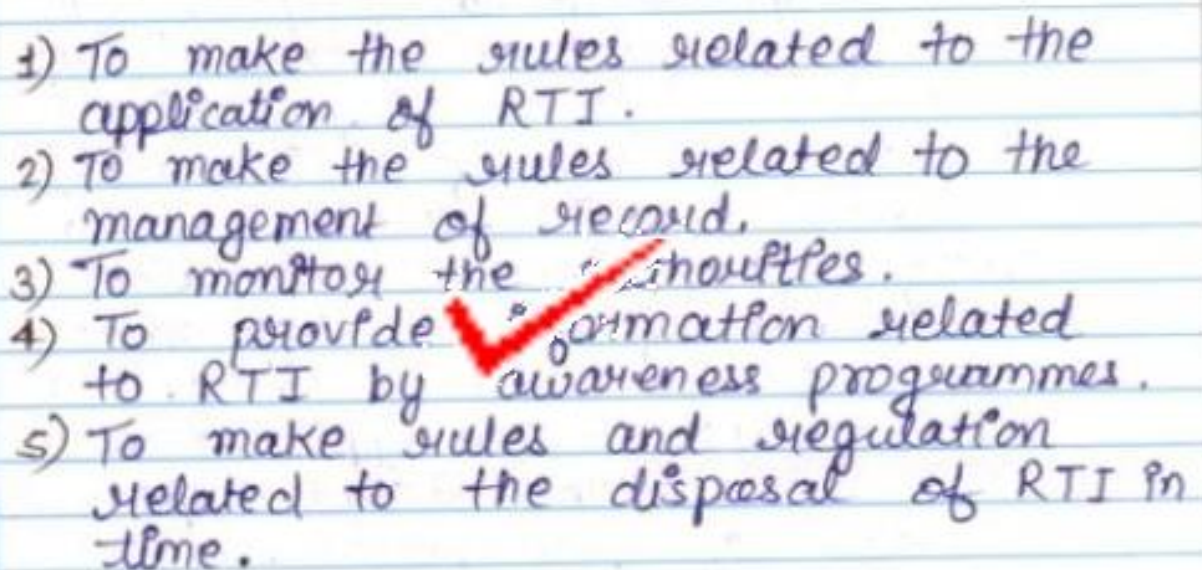 1) To make the rules related to the
application of RTI.
2) To make the rules related to the
management of record.
3) To monitor the
4) To provide related
to RTI by awareness programmes.
5) To make rules and regulation
related to the disposal of RTI in
time.